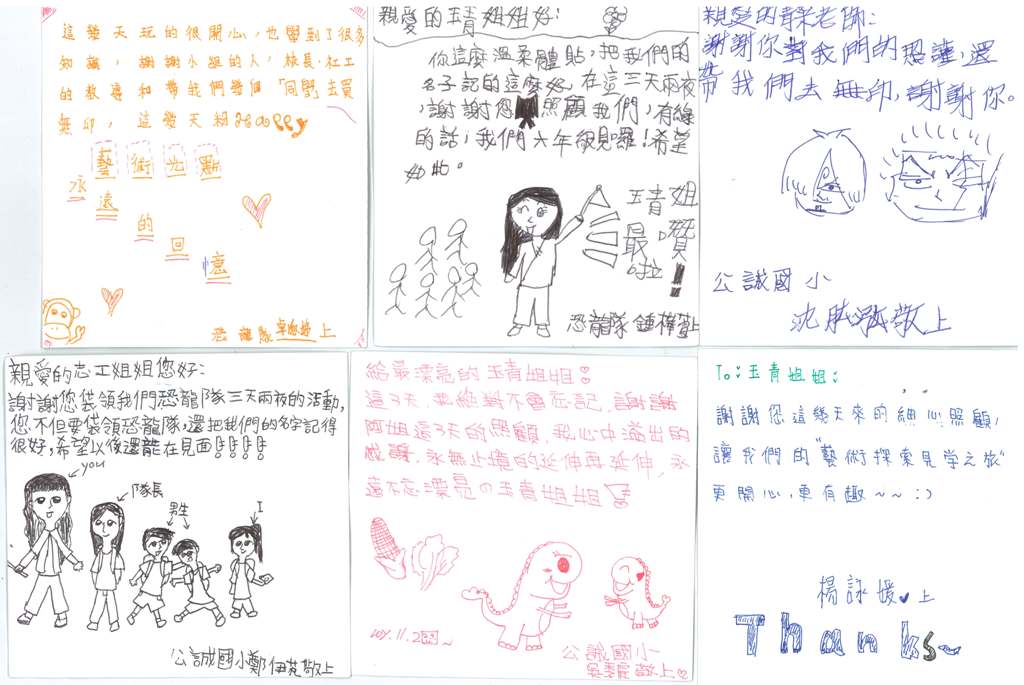 這幾天玩的很開心,也學到了很多
知識,謝謝小組的人,校長、社工
的教導和帶我們幾個"同學"去買
無印,這幾天超happy
藝術光點
永遠的回憶
恐龍隊 上
親愛的玉青姐姐好:
你這麼溫柔體貼,把我們的
名子記的這麼好,在這三天兩夜
,謝謝您照顧我們,有緣
的話,我們六年級見囉!希望
如此。
玉青姐
最讚
啦!!
恐龍隊 鍾 上
親愛的 老師:
謝謝你對我們的照護,還
帶我們去無印,謝謝你。
公誠國小
沈 敬上
親愛的志工姐姐您好:
謝謝您袋領我們恐龍隊三天兩夜的活動,
您不但要袋領恐龍隊,還把我們的名字記得
很好,希望以後還龍在見面!!!!
you
隊長
男生
I
公誠國小鄭伊芫敬上
給最漂亮的玉青姐姐
這3天,我絕對不會忘記,謝謝
阿姐這3天的照顧,我心中溢出的
感謝,永無止境的延伸再延伸,永
遠不忘漂亮の玉青姐姐
公誠國小
敬上
To:玉青姐姐:
謝謝您這幾天來的細心照顧,
讓我們的"藝術探索見学之旅"
更開心,更有趣~~:)
楊詠媛 上
Thanks~